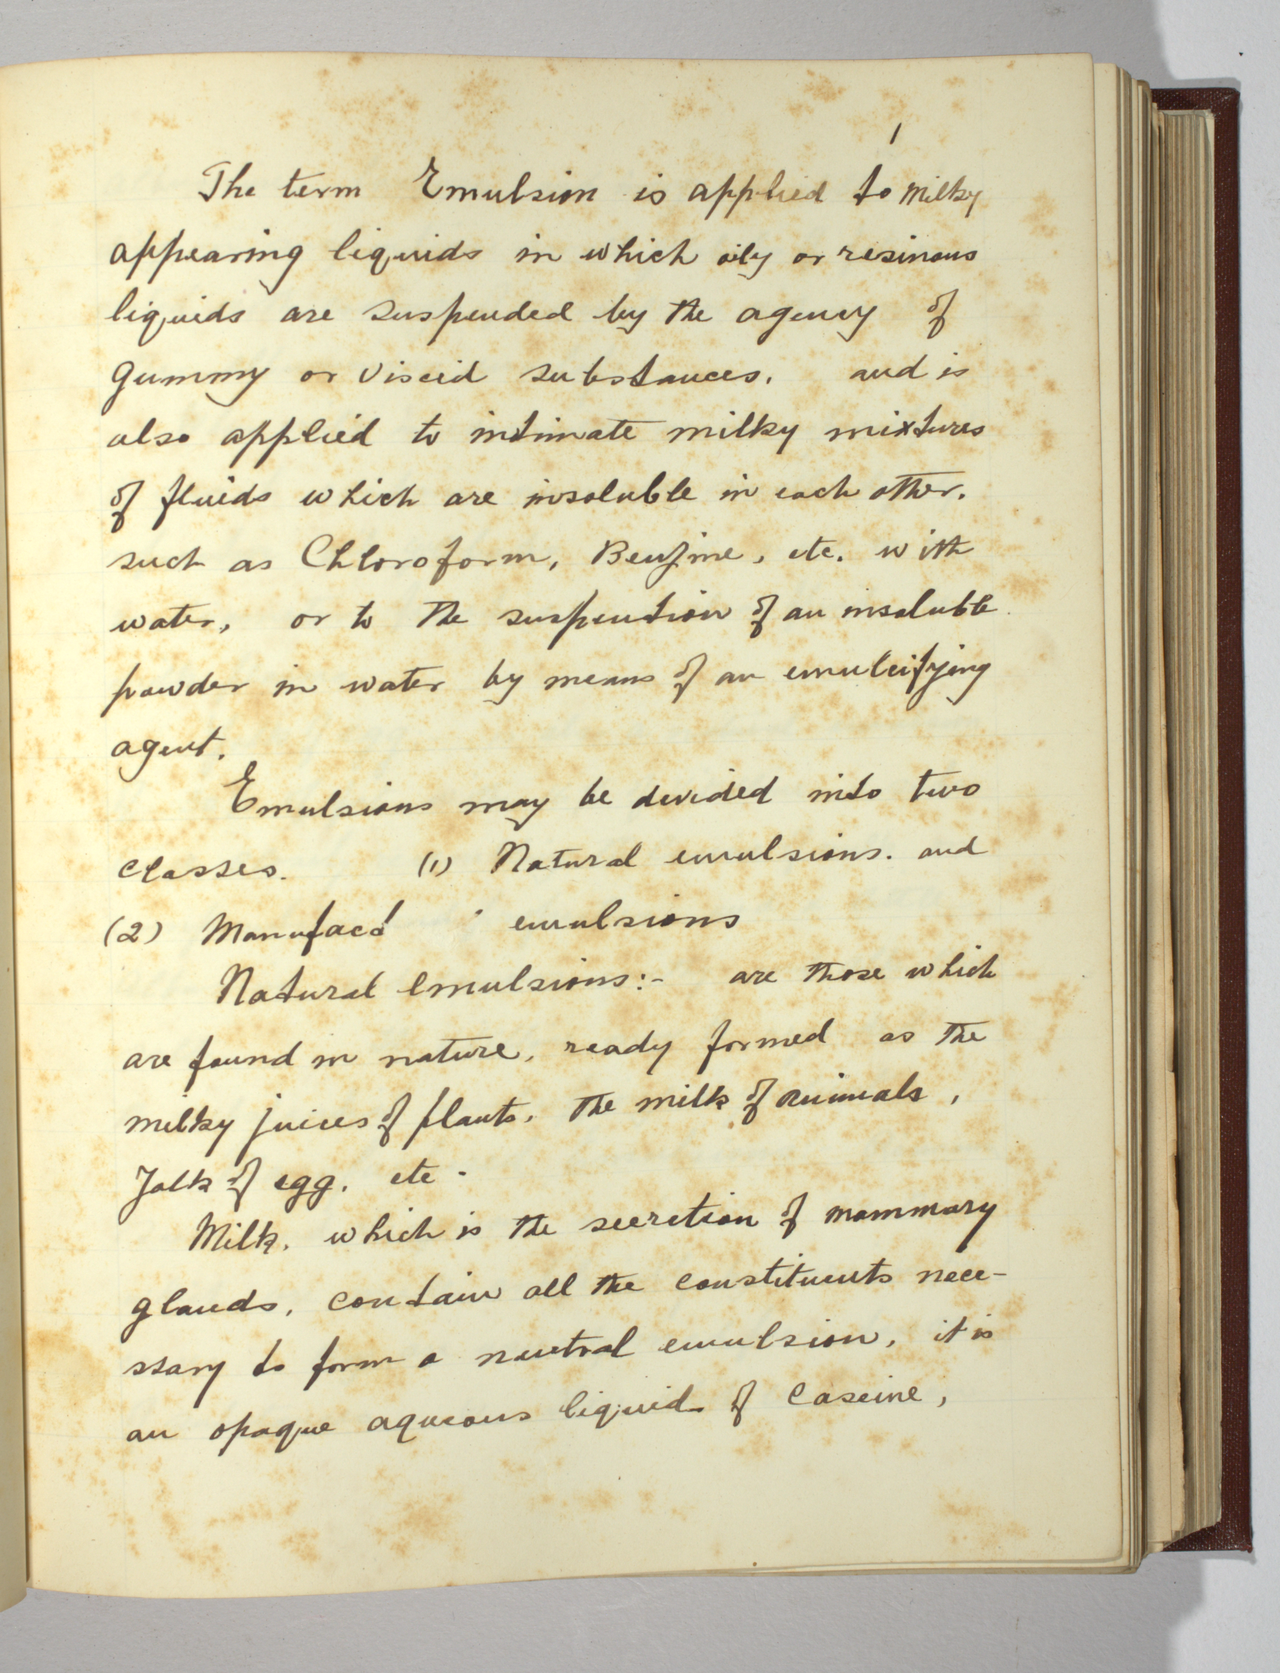 1
The term Emulsion is applied to milky
appearing liquids in which oily or resinous
liquids are suspended by the agency of
gummy or viscid substances. and is
also applied to intimate milky mixtures
of fluids which are insoluble in each other.
such as Chloroform, Benzine, etc. with
water, or to the suspention of an insoluble
powder in water by means of an emulcifying
agent.
Emulsions may be devided into two
classes. (1) Natural emulsions. and
(2) Manufact emulsions
Natural emulsions:- are those which
are found in nature, ready formed as the
milky juices of plants, the milk of animals,
Yolk of egg, etc.
Milk, which is the secretion of mammary
glands, contain all the constituents nece-
ssary to form a neutral emulsion, it is
an opaque aqueous liquid of caseine,